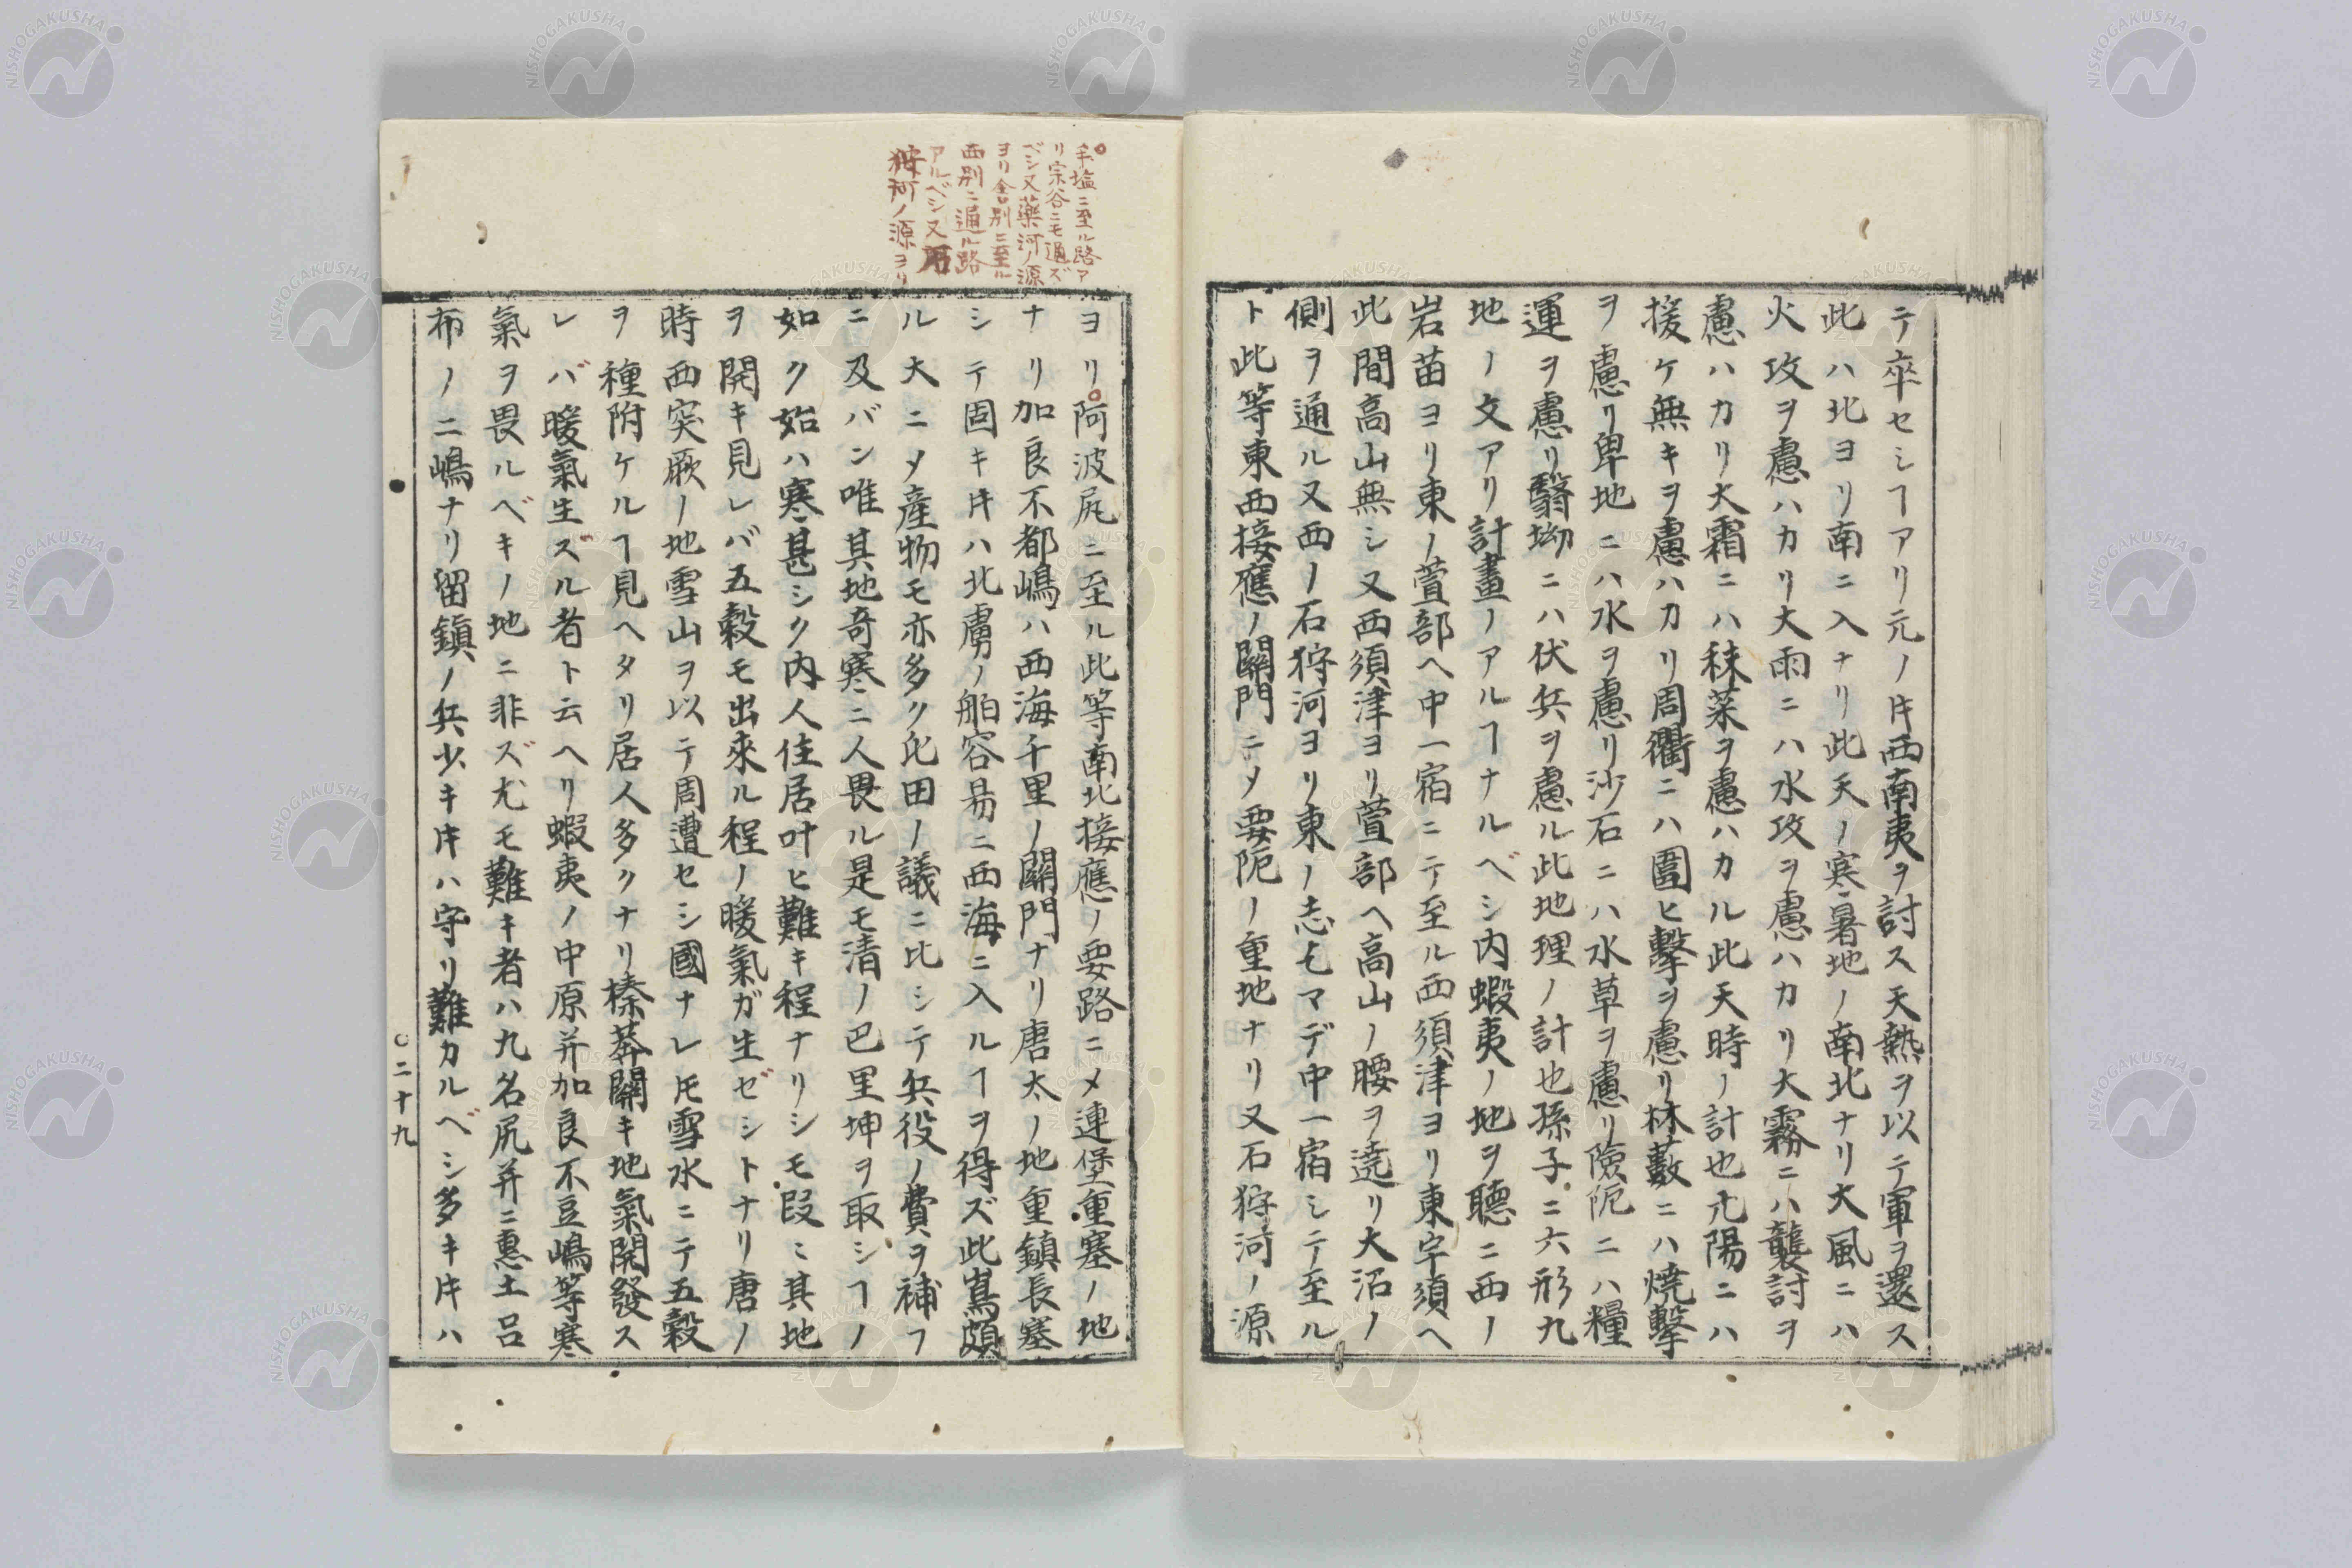 テ卒セシヿアリ元ノ𪜈西南夷ヲ討ス天熱ヲ以テ軍ヲ還ス
此ハ北ヨリ南ニ入ナリ此天ノ寒暑地ノ南北ナリ大風ニハ
火攻ヲ慮ハカリ大雨ニハ水攻ヲ慮ハカリ大霧ニハ襲討ヲ
慮ハカリ大霜ニハ秣菜ヲ慮ハカル此天時ノ計也亢陽ニハ
援ケ無キヲ慮ハカリ周衢ニハ圍ヒ擊ヲ慮リ林藪ニハ燒擊
ヲ慮リ卑地ニハ水ヲ慮リ沙石ニハ水草ヲ慮リ險阨ニハ糧
運ヲ慮リ翳坳ニハ伏兵ヲ慮ル此地理ノ計也孫子ニ六形九
地ノ文アリ計畫ノアルヿナルベシ内蝦夷ノ地ヲ聽ニ西ノ
岩苗ヨリ東ノ萱部ヘ中一宿ニテ至ル西須津ヨリ東宇須ヘ
此間高山無シ又西須津ヨリ萱部ヘ高山ノ腰ヲ遶リ大沼ノ
側ヲ通ル又西ノ石狩河ヨリ東ノ志モマデ中一宿シテ至ル
ト此等東西接應ノ關門ニメ要阨ノ重地ナリ又石狩河ノ源
手塩ニ至ル路ア
リ宗谷ニモ通ズ
ベシ又藥河ノ源
ヨリ舎別ニ至ル
西別ニ通ル路
アルベシ又
狩河ノ源ヨリ
ヨリ阿波尻ニ至ル此等南北接應ノ要路ニメ連堡重塞ノ地
ナリ加良不都嶋ハ西海千里ノ關門ナリ唐太ノ地重鎮長塞
シテ固キ𪜈ハ北虜ノ舶容昜ニ西海ニ入ルヿヲ得ズ此嶌頗
ル大ニメ産物モ亦多ク屯田ノ議ニ比シテ兵役ノ費ヲ補フ
ニ及バン唯其地奇寒ニ人畏ル是モ清ノ巴里坤ヲ取シヿノ
如ク始ハ寒甚シク内人住居叶ヒ難キ程ナリシモ段〻其地
ヲ開キ見レバ五穀モ出來ル程ノ暖氣ガ生ゼシトナリ唐ノ
時西突厥ノ地雪山ヲ以テ周遭セシ國ナレ𪜈雪水ニテ五穀
ヲ種附ケルヿ見ヘタリ居人多クナリ榛莽闢キ地氣開發ス
レバ暖氣生ズル者ト云ヘリ蝦夷ノ中原并加良不豆嶋等寒
氣ヲ畏ルベキノ地ニ非ズ尤モ難キ者ハ九名尻并ニ惠土呂
布ノ二嶋ナリ留鎮ノ兵少キ𪜈ハ守リ難カルベシ多キ𪜈ハ
二十九
NISHOGAKUSHA